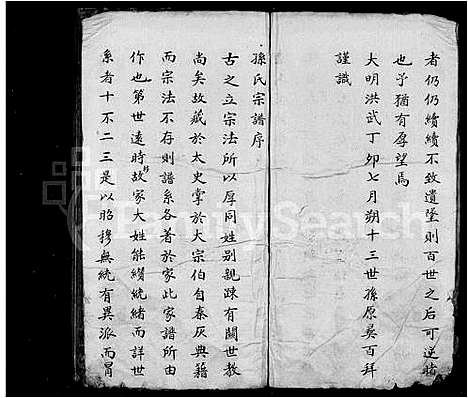 者仍仍續續不致遺墜則百世之後可逆睹
也予猶有厚望焉
大明洪武丁卯七月朔十三世孫原昊百拜
謹識
孫氏宗譜序
古之立宗法所以厚同姓別親疎有關世教
尚矣故藏於太史掌於大宗伯自秦灰典籍
而宗法不存則譜系各著於家此家譜所由
作也第世遠時移故家大姓能纘統緒而詳世
系者十不二三是以昭穆無統有異派而冒
FamilySearch